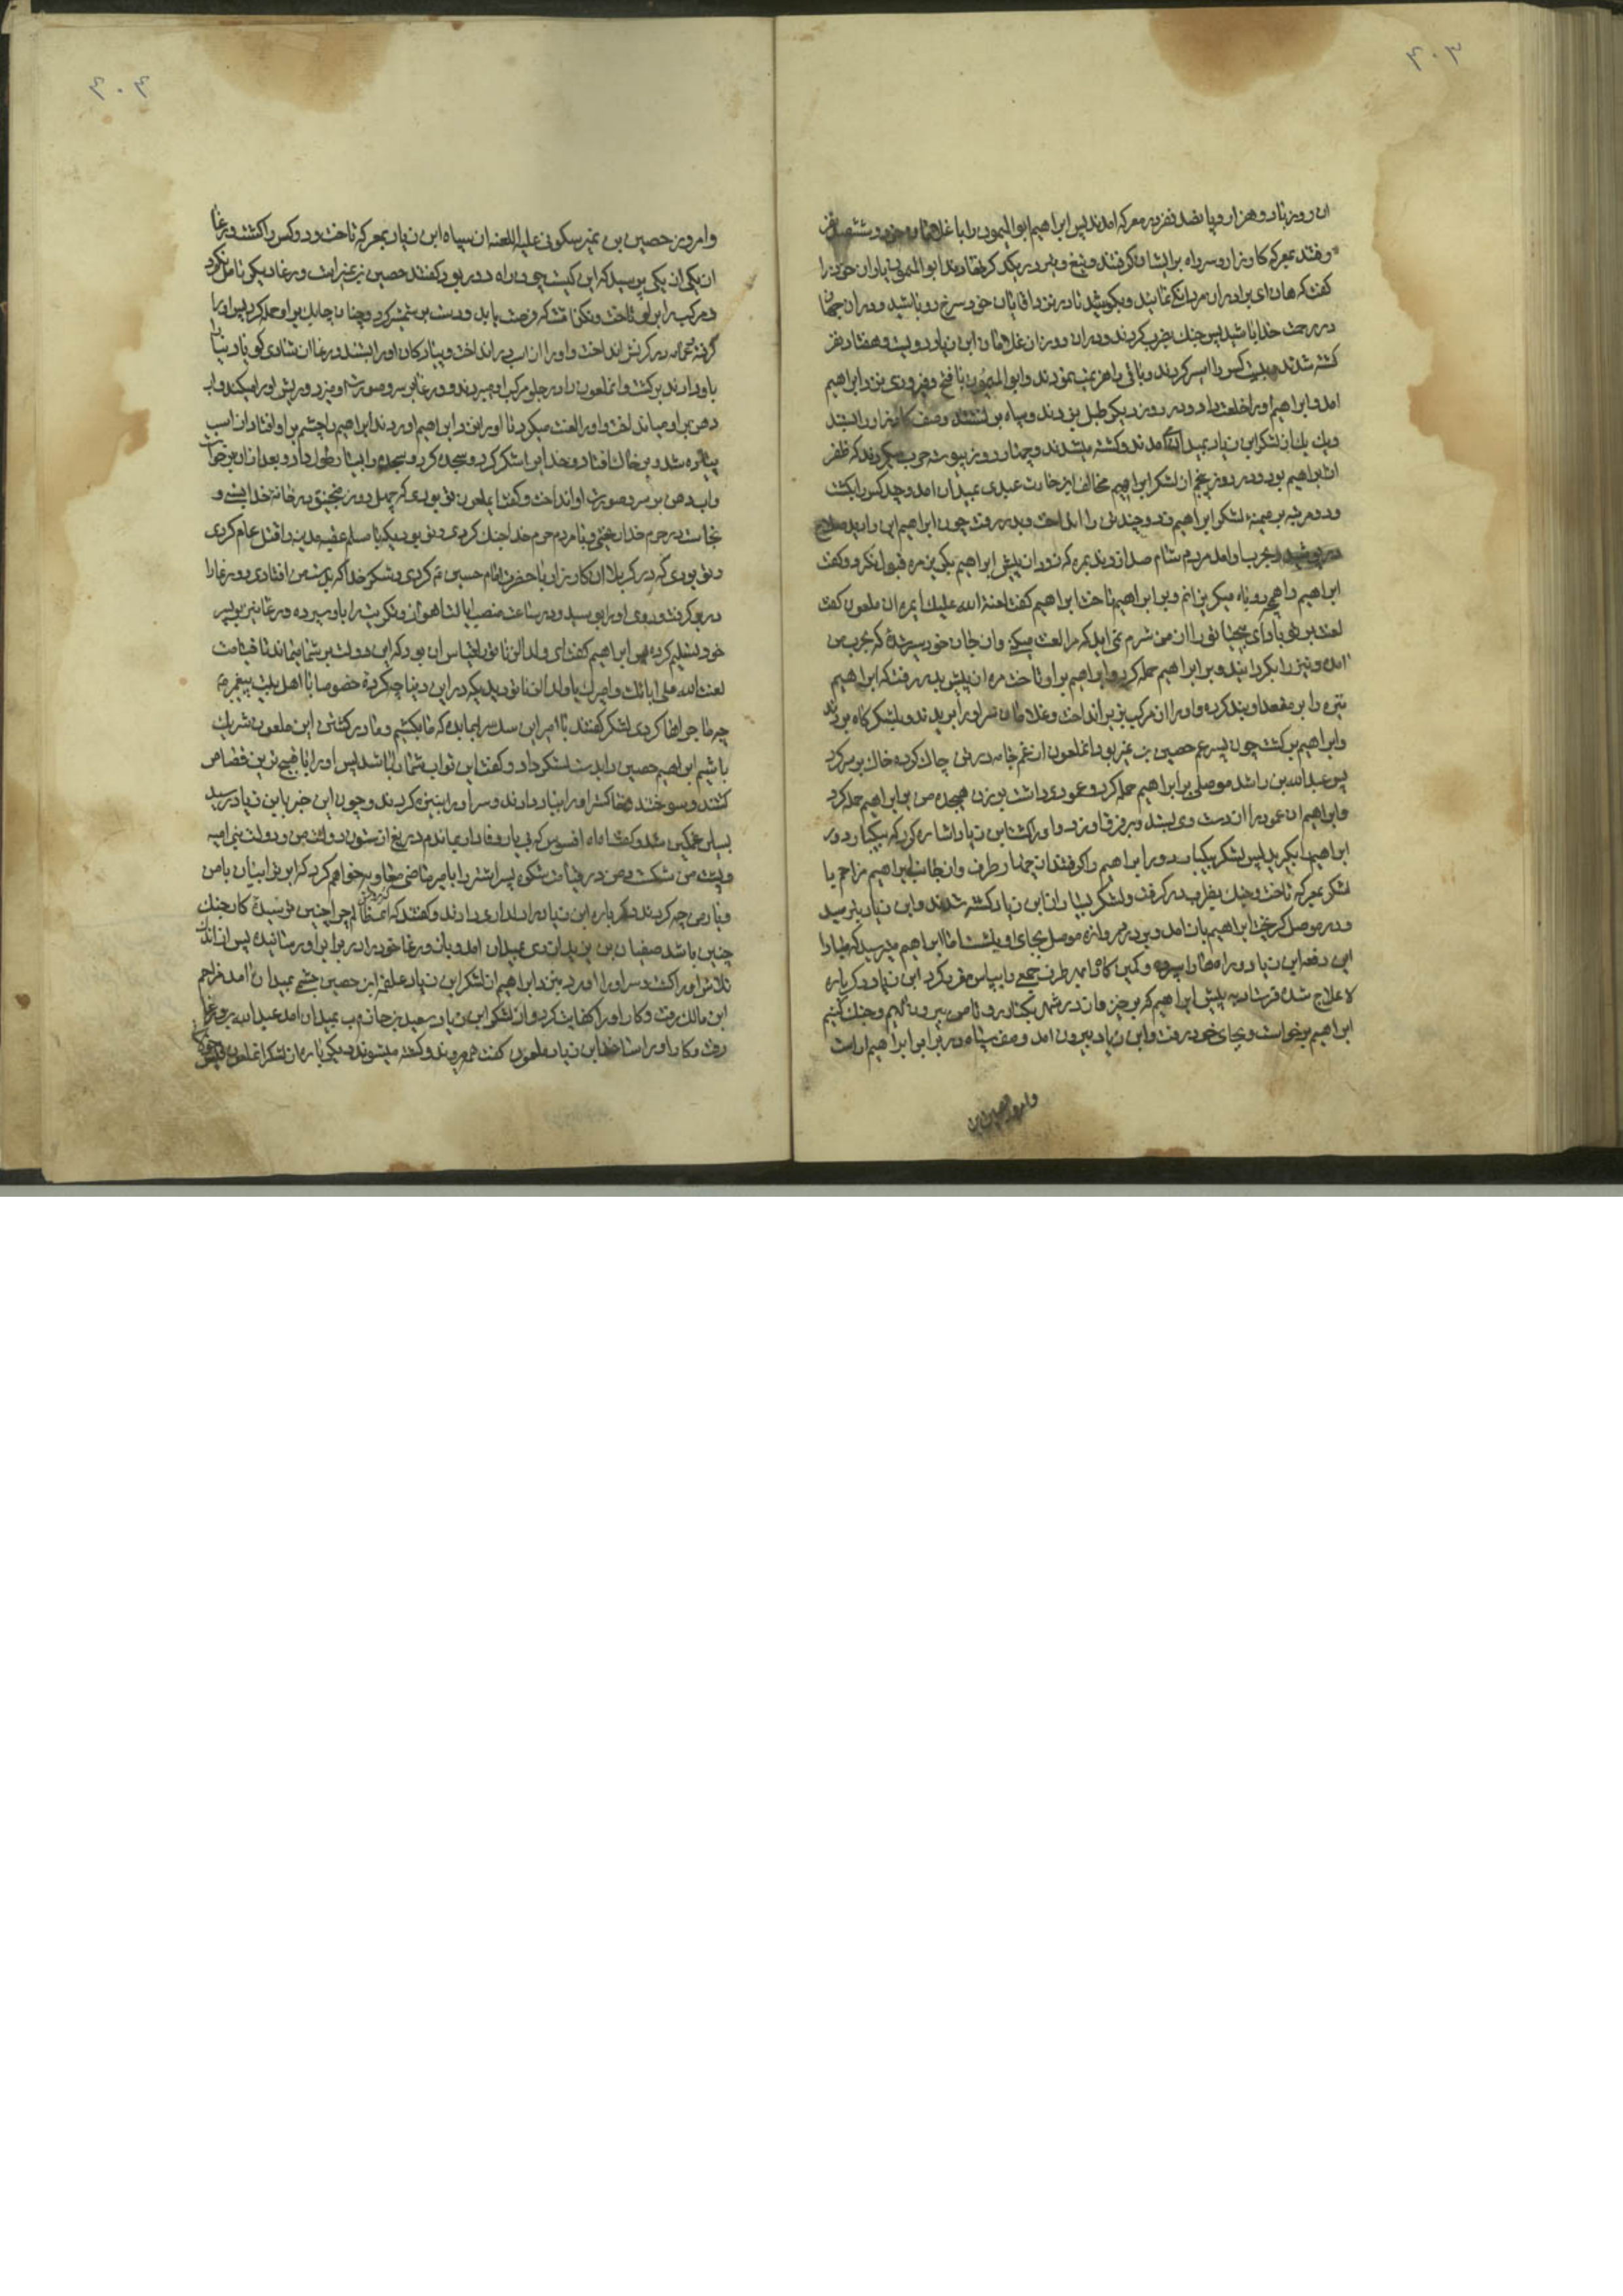 ۴۰۳
ان روز باد و هزار و پانصد نفر در معرکه امدند پس ابراهیم ابوالمیمون را با غلامان خود و ششصد نفر
کفت که هان ای برادران مردانکی نمائید و بکوشید تا در نزد اقایان خود سرخ رو باشید و در ان جهان
در رحمت خدا باشید پس جنك بضرب کردند و دران روز از غلامان ابن زیاد دویست و هفتاد نفر
کشته شدند کس را اسیر کردند و باقی راه هزیمت نمودند و ابوالمیمون با فتح و فیروزی نزد ابراهیم
امد و ابراهیم او را خلعت داد و در روز دیکر طبل بزدند و سپاه بر نشستند وصف کارزار را بستند
و یك یك از لشکر ابن زیاد بمیدان امدند و کشته میشدند و چهار روز پیوسته حرب میکردند که ظفر
از ابراهیم بود و در روز پنجم از لشکر ابراهیم مخالف ابن حارث عبدی بمیدان امد و چند کس را بکشت
و دو مرتبه بر میمنه لشکر ابراهیم زد و چند تن را انداخت و بدر رفت چون ابراهیم این را بدید سلاح
بحرب او امد مردم شام صدا زدند بمره که زود از پیش ابراهیم بکریز مره قبول نکرد و کفت
ابراهیم را همچو روباه میکریزانم و بر ابراهیم تاخت ابراهیم کفت لعنة الله علیك ایمره ان ملعون کفت
لعنت بر تو باد ای بیحیا تو را از من شرم نمی اید که مرا لعنت میکنی و از جان خود سیر شدهٔ که بحرب من
امده و نیزه را بکردانید و بر ابراهیم حمله کرد و ابراهیم بر او تاخت مره از پیش بدر رفت که ابراهیم
نیزه را بر مقعد او بند کرده و او را از مرکب بزیر انداخت و غلامان سر او را بریدند و بلشکرکاه بردند
و ابراهیم برکشت چون پسر عم حصین بن نمیر بود انملعون از غم جامه در تن چاك کرده خاك بر سر کرد
پس عبدالله بن راشد موصلی بر ابراهیم حمله کرد و عمودی داشت بوزن هیجده من بر ابراهیم حمله کرد
و ابراهیم ان عمود را از دست وی بستد و بر فرق او زد و او را کشت ابن زیاد اشاره کرد که بیکبار دور
ابراهیم را بکرید پس لشکر بیکبار دور ابراهیم را کرفتند از چهار طرف و از جانب ابراهیم مزاحم با
لشکر بمعرکه تاخت و جنك بضرب در کرفت و لشکر بسیار از ابن زیاد کشته شدند و ابن زیاد بترسید
و در موصل کریخت ابراهیم باز امد و بر در دروازه موصل بجای او بنشست اما ابراهیم میترسید که مبادا
ابن زیاد و کمین کاه نماید طرف جمعی را بپاس مقرر کرد ابن زیاد دکر باره
لا علاج شده فرستاد به پیش ابراهیم که برخیز مان در شهر بکذار و تا من بیرون ایم و جنك کنیم
ابراهیم برخواست و بجای خود رفت و ابن زیاد بیرون امد و صف سپاه در برابر ابراهیم اراست
۴۰۴
و امروز حصین بن نمیر سکونی علیه اللعنه از سپاه ابن زیاد بمعرکه تاخت و دو کس را کشت ورغا
از یکی پرسید که این کیست چون براه دور بود کفتند حصین بن نمیر است ورغا دیکر تامل نکرد
و مرکب را بر او تاخت و نکذاشت که فرصت یابد و دست بر شمشیر کرد و چنان چابك بر او حمله کرد پس او را
کرفته عمامه در کردنش انداخت و او را از اسب در انداخت و پیادکان او را بستند ورغا از شادی کویا دنیا را
باو دادند برکشت و انملعون را در جلو مرکب او میبردند و ورغا بر سر و صورت او میزد و ریش او را میکند و اب
دهن بر او میانداخت و او را لعنت میکرد تا او را نزد ابراهیم اوردند ابراهیم را چشم بر او افتاد از اسب
پیاده شد و بر خاك افتاد و خدا را شکر کرد و سجده کرد و سجده را بسیار طول داد و بعد ازان برخواست
و اب دهن بر سر و صورت او انداخت و کفت ایملعون تو بودی که چهل روز منجنیق بر خانهٔ خدا بستی و
نجاست در حرم خدا ریختی و با مردم حرم خدا جنك کردی و تو بودیکه با مسلم عقبه مدینه را قتل عام کردی
و تو بودی که در کربلا ان کارزار با حضرت امام حسین تم کردی و شکر خدا که بدست من افتادی و ورغا را
در بر کرفت و روی او را بوسید و در ساعت منصب باو سپرده ورغا نیز به پسر
خود تسلیم کرده پس ابراهیم کفت ای ولدالزنا تو را قیاس ان بود که این دولت بر شما بماند تا قیامت
لعنت الله علی ابائك و امیرك یا ولدالزنا تو دیدیکه در این دنیا چه کرده خصوصا با اهل بیت پیغمبر ص
چه ماجراها کردی لشکر کفتند یا امیر این سك را بما بده که ما بکشیم و ما در کشتن این ملعون شریك
باشیم ابراهیم حصین را بدست لشکر داد و کفت این ثواب شما را باشد پس او را با قبیح ترین قصاص
کشتند و سوختند و خاکسترش را بباد دادند و سر او را بنیزه کردند و چون این خبر بابن زیاد رسید
بسیار غمکین شد و کفت اه اه افسوس که بی یار وفادار بماندم دریغ از ستون دولت من و دولت بنی امیه
و پشت من شکست و من در قیامت شکوه پسر اشتر را با امیر ماضی معاویه خواهم کرد که ابوترابیان با من
و یار من چه کردند دکر باره ابن زیاد را دلداری دادند و کفتند که ایمظالم چرا چنین ترسیدهٔ کار جنك
چنین باشد صفیان بن یزید ازدی بمیدان امد و باز ورغا خود را در برابر او رسانیده پس از اندك
تلاش او را کشت و سر او را اورد بنزد ابراهیم از لشکر ابن زیاد علقه ابن حصین جشمی بمیدان امد مزاحم
ابن مالك رفت و کار او را کفایت کرد و از لشکر ابن زیاد سعید بن حازم ب بمیدان امد عبدالله ورغا
رفت و کار او را ساخت ابن زیاد ملعون کفت میروند و کشته میشوند دیکر